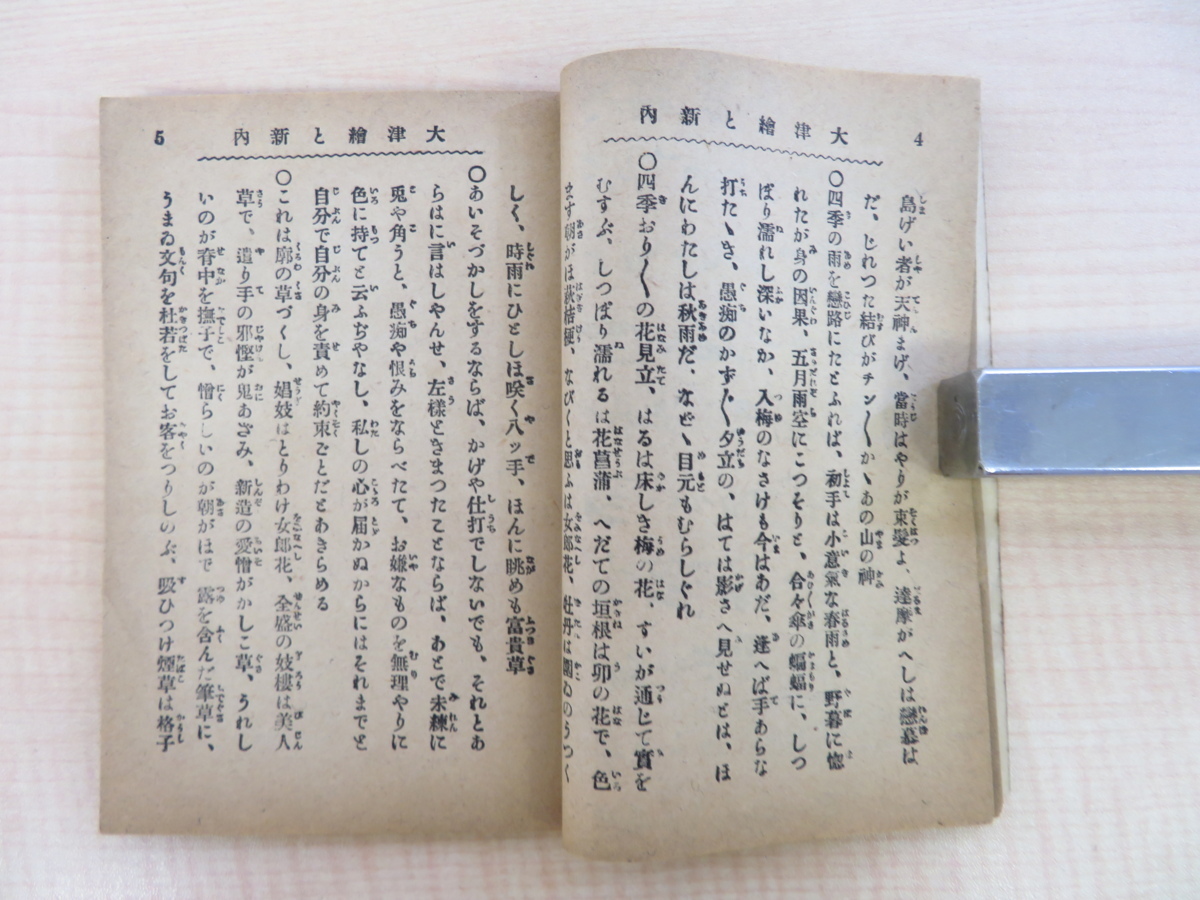 4
大津繪と新內
島げい者が天神まげ、當時はやりが束髮よ、達摩がへしは戀慕は
だ、じれつた結びがチン〳〵か〻あの山の神
〇四季の雨を戀路にたとふれば、初手は小意氣な春雨と、野暮に惚
れたが身の因果、五月雨空にこつそりと、合々傘の蝙蝠に、しつ
ぽり濡れし深いなか、入梅のなさけも今はあだ、逢へば手あらな
打た〻き、愚痴のかず〴〵夕立の、はては影さへ見せぬとは、ほ
んにわたしは秋雨だ、など〻目元もむらしぐれ
〇四季おり〳〵の花見立、はるは床しき梅の花、すいが通じて實を
むすぶ、しつぽり濡れるは花菖蒲、へだての垣根は卯の花で、色
ます朝がほ萩桔梗、なびくと思ふは女郎花、牡丹は閨ゐのうつく
大津繪と新內
5
しく、時雨にひとしほ咲く八ッ手、ほんに眺めも富貴草
〇あいそづかしをするならば、かげや仕打でしないでも、それとあ
らはに言はしやんせ、左樣ときまつたことならば、あとで未練に
兎や角うと、愚痴や恨みをならべたて、お嫌なものを無理やりに
色に持てと云ふぢやなし、私しの心が屆かぬからにはそれまでと
自分で自分の身を責めて約束ごとだとあきらめる
〇これは廓の草づくし、娼妓はとりわけ女郎花、全盛の妓樓は美人
草で、遣り手の邪慳が鬼あざみ、新造の愛憎がかしこ草、うれし
いのが脊中を撫子で、憎らしいのが朝がほで、露を含んだ筆草に、
うまゐ文句を杜若をしてお客をつりしのぶ、吸ひつけ煙草は格子